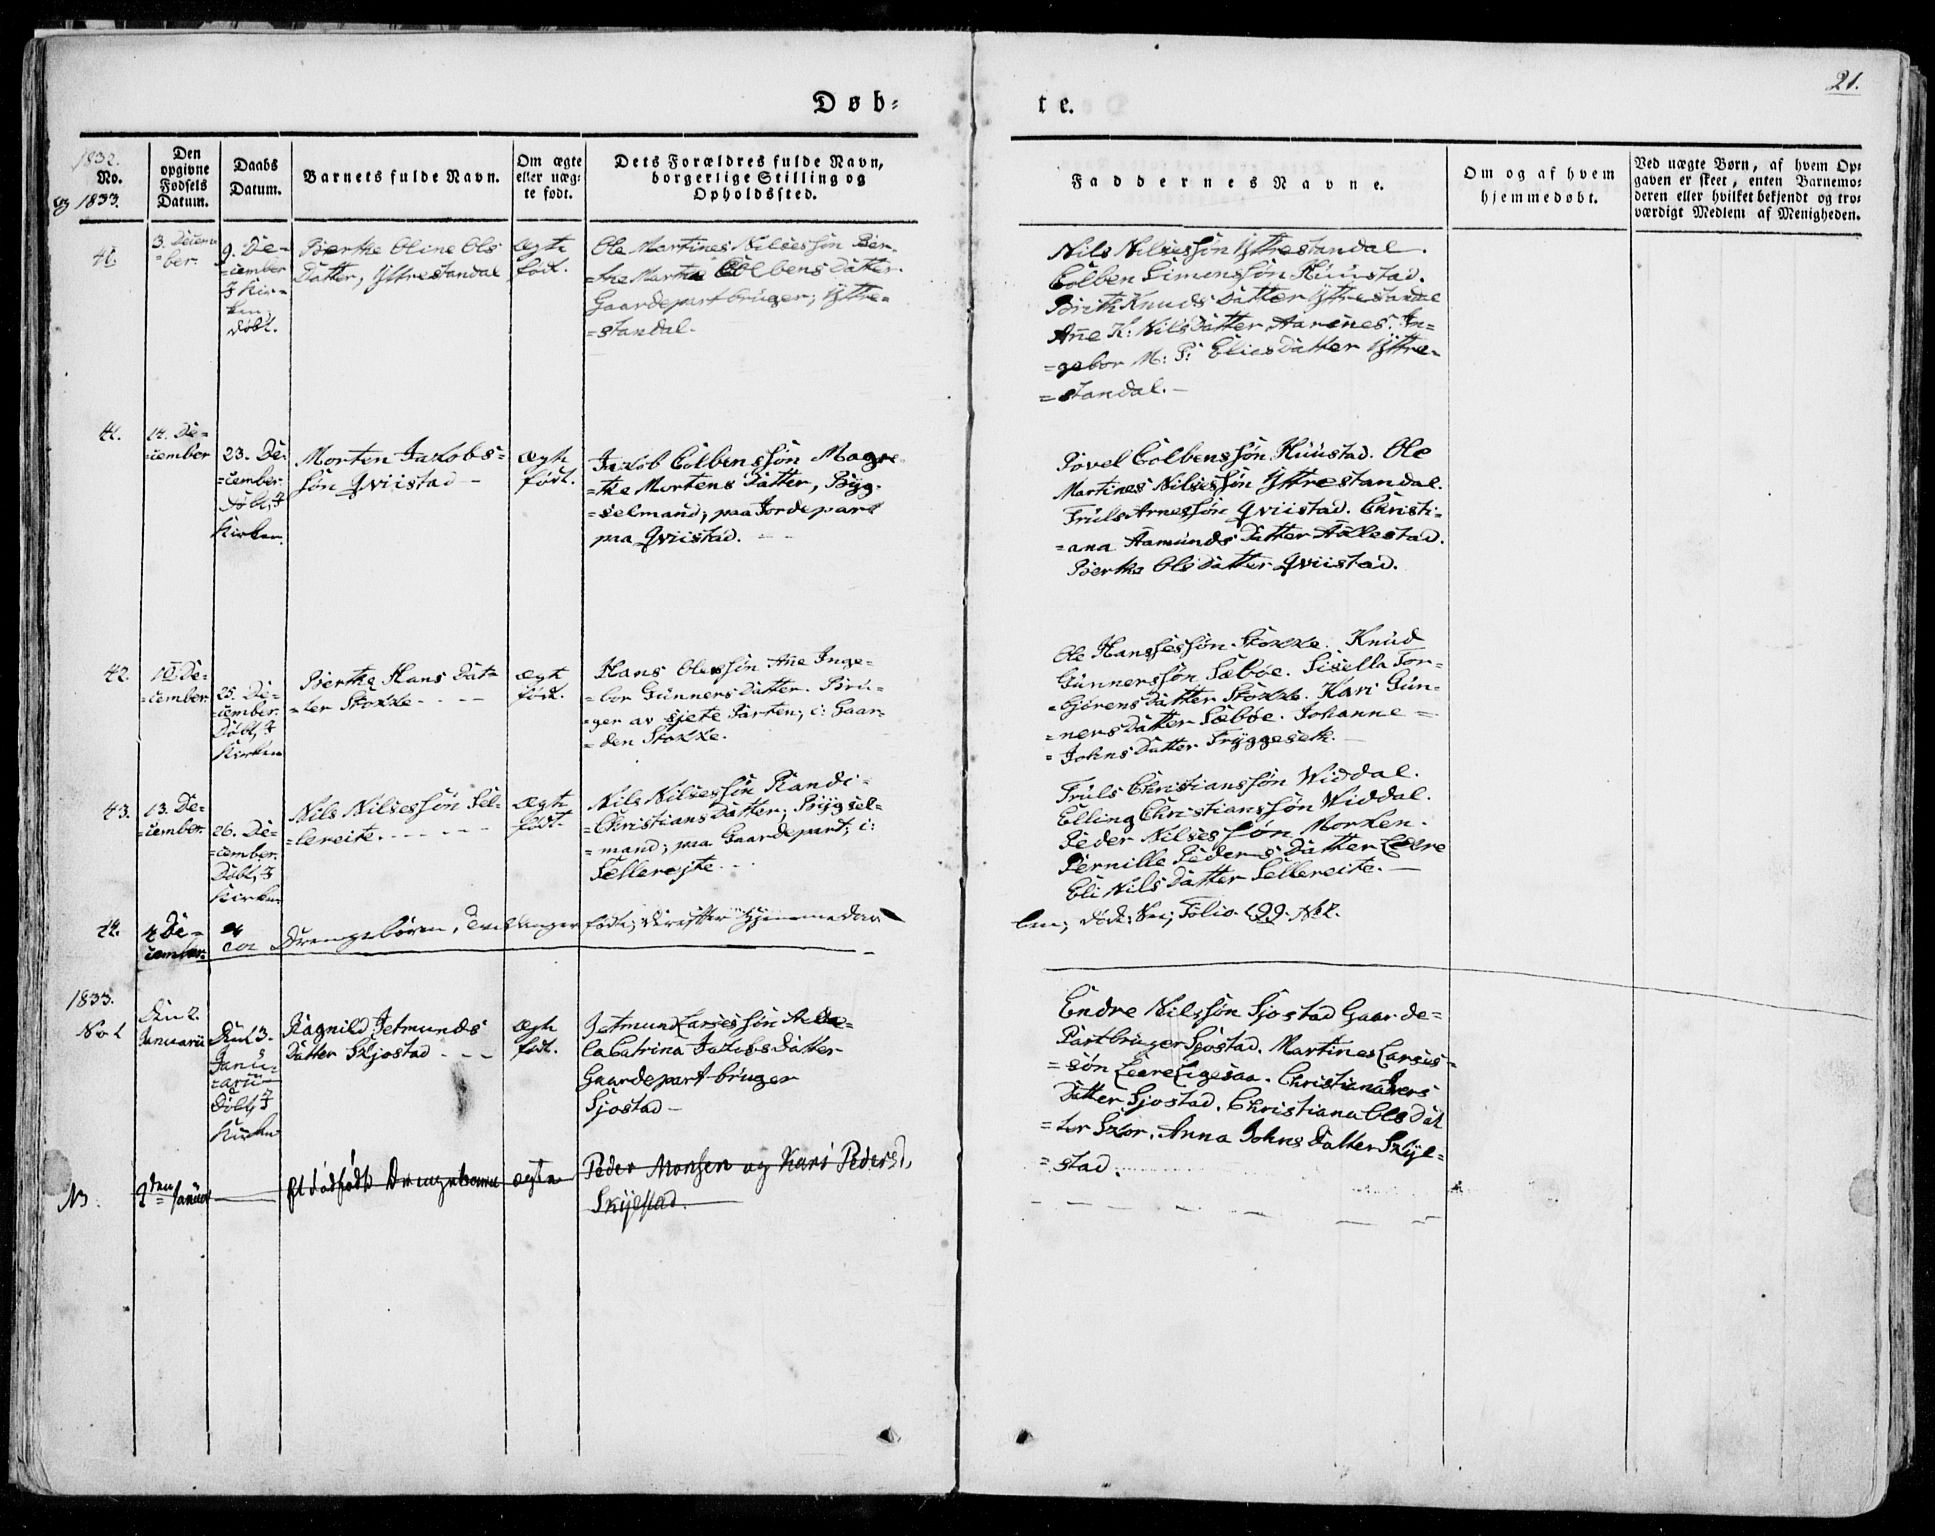 21.
Døb-
te.
1832.
No.
og 1833.
Den
opgivne
Fødsels
Datum.
Daabs
Datum.
Barnets fulde Navn.
Om ægte
eller uæg-
te født.
Dets Forældres fulde Navn,
borgerlige Stilling og
Opholdssted.
Faddernes Navne.
Om og af hvem
hjemmedøbt.
Ved uægte Børn, af hvem Op-
gaven er skeet, enten Barnemo-
deren eller hvilket bekjendt og tro-
værdigt Medlem af Menigheden.
3. Decem
=ber.
9. De-
=cember
I Kir-
ken
døbt.
Berthe Oline Ols
Datter, Yttrestandal
Ægte
født.
Ole Martines Nilsessøn Ber-
=the Marthe Colbens Datter.
Gaardepartbruger; Yttre-
=standal.
Nils Nilsessøn Yttrestandal.
Colben Simonssøn Huustad.
Birith Knuds Datter Yttrestandal
Ane K: Nils Datter Aarsnes. In-
=gebor M: P: Elies Datter Yttre-
=standal.
41.
14. De-
=cember
23. De-
=cember.
Døbt, I
Kirken.
Morten Jakobs-
søn Qviistad -
ægte
født.
Jakob Colbenssøn Magre
=the Mortens Datter, Byg-
=selmand; paa Jordepart
paa Qviistad.
Povel Colbenssøn Huustad. Ole
Martines Nilsessøn Yttrestandal.
Truls Arnessøn Qviistad. Christi-
=ana Aamunds Datter Aallestad.
Berthe Ols Datter Qviistad.
42.
De-
=cember
25. De-
=cember.
Døbt, I
Kirken
Berthe Hans Dat-
=ter Stokke
ægte
født.
Hans Olessøn Ane Inge-
=bor Gunners Datter. Bru-
=ger av sjete Parten; i: Gaar-
=den Stokke.
Ole Hanssessøn Stokke. Knud
Gunnerssøn Sæbøe. Sisella Tor-
=Gjørens Datter Stokke. Kari Gun-
=ners Datter Sæbøe. Johanne =
=Johns Datter Tryggeseth.
43.
13. De-
=cember.
26. De-
=cember.
Døbt, I
Kirken
Nils Nilsessøn Sel-
=lereite.
Ægte
født.
Nils Nilsessøn Randi-
=Christians Datter; Bygsel-
=mand; paa Gaardepart; i:
Selleræjte
Truls Christianssøn Widdal.
Elling Christianssøn Widdal.
Peder Nilsessøn Morken.
Pernille Peders Datter Leere
Eli Nils Datter Sellereite.
44.
4 De-
=cember.
Drengebørn, født; Hjemmedøv
len; død: See; Folio. 199. No 2.
1833.
No 1
Den 2.
Januarii
Den 13.
Janu-
=arii
Døbt, I
Kirken
Ragnild Jetmunds
Datter Skjostad
ægte
født.
Jetmund Larsessøn
Catrina Jakobs Datter
Gaardepart bruger
Sjostad -
Endre Nilssøn Sjostad Gaarde=
Partbruger Sjostad. Martines Larses=
=søn Leere Ligesaa. Christiana Ivers
Datter Sjostad. Christiana Ols Dat
=ter Skor. Anna Johns Datter Skye-
=stad.
NB.
2den Januar
Et dødfødt Drengebarn
ægte
Peder Monsen og Kari Pedersd,
Skyestad.